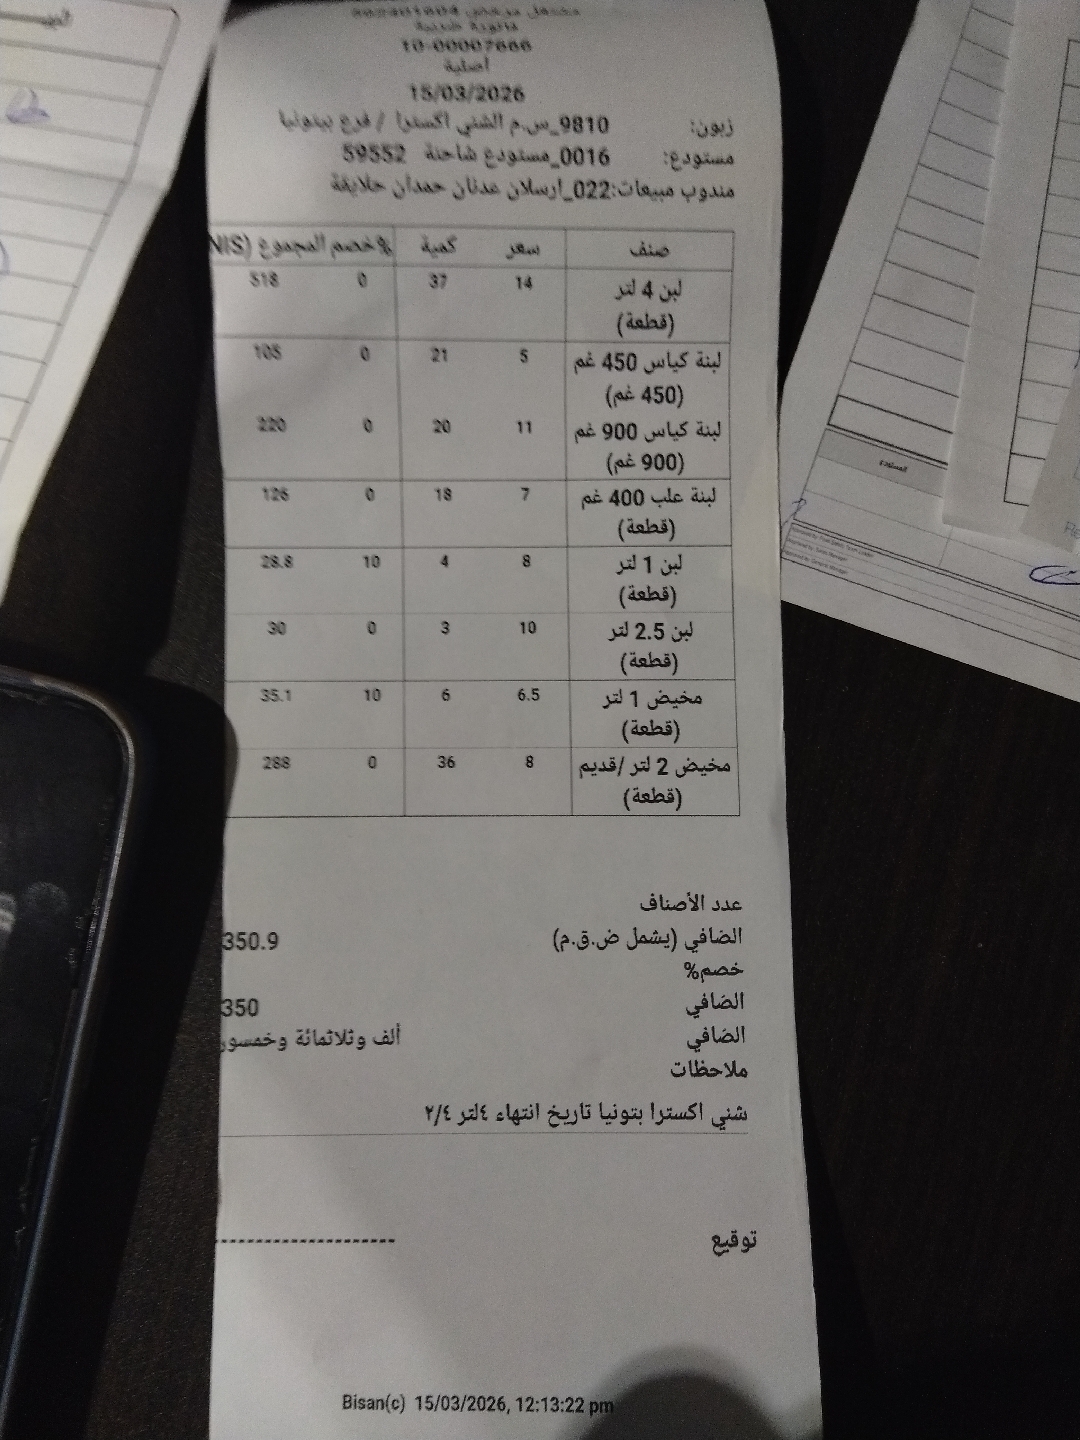 مشتغل مرخص
فاتورة ضريبية
10-00007666
أصلية
15/03/2026
زبون: 9810_س.م الشني اكسترا / فرع بيتونيا
مستودع: 0016_مستودع شاحنة 59552
مندوب مبيعات:022_ارسلان عدنان حمدان حلايقة
صنف سعر كمية %خصم المجموع (NIS
لبن 4 لتر 14 37 0 518
(قطعة)
لبنة كياس 450 غم 5 21 0 105
(450 غم)
لبنة كياس 900 غم 11 20 0 220
(900 غم)
لبنة علب 400 غم 7 18 0 126
(قطعة)
لبن 1 لتر 8 4 10 28.8
(قطعة)
لبن 2.5 لتر 10 3 0 30
(قطعة)
مخيض 1 لتر 6.5 6 10 35.1
(قطعة)
مخيض 2 لتر /قديم 8 36 0 288
(قطعة)
عدد الأصناف
الضافي (يشمل ض.ق.م) 350.9
خصم%
الضافي 350
الضافي ألف وثلاثمائة وخمسور
ملاحظات
شني اكسترا بتونيا تاريخ انتهاء ٤لتر ٢/٤
توقيع
Bisan(c) 15/03/2026, 12:13:22 pm
المستودع